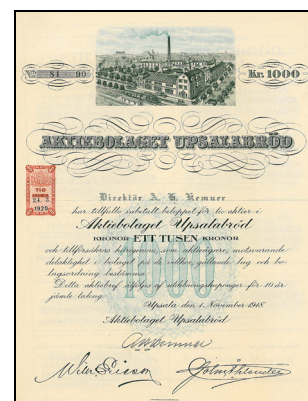 No 81-90
Kr. 1000
AKTIEBOLAGET UPSALABRÖD
TIO
KRONOR
24. 3.
1920
Direktör A. H. Kemner
har tillfullo inbetalt beloppet för tio aktier i
Aktiebolaget Upsalabröd
KRONOR ETT TUSEN KRONOR
och tillförsäkras härigenom, som aktieägare, motsvarande
delaktighet i bolaget på de villkor, gällande lag och bo-
lagsordning bestämma.
Detta aktiebref åtföljes af utdelningskuponger för 10 år
jämte talong.
Upsala den 1 November 1918.
Aktiebolaget Upsalabröd
AHKemner